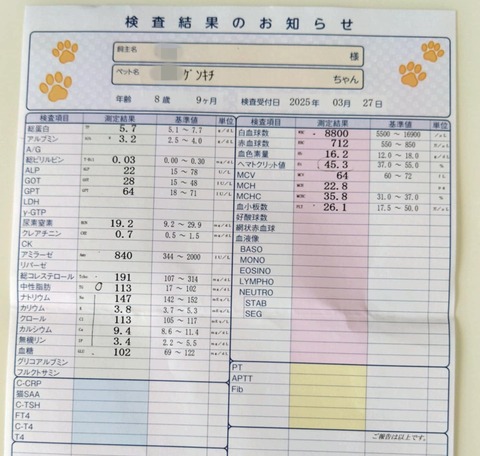 検査結果のお知らせ
飼主名 様
ペット名 ｹﾞﾝｷﾁ ちゃん
年齢 8 歳 9ヶ月 検査受付日 2025年 03月 27日
検査項目 測定結果 基準値 単位
総蛋白 5.7 5.1 ～ 7.7
アルブミン 3.2 2.5 ～ 4.0
A/G
総ビリルビン 0.03 0.00 ～ 0.30
ALP 22 15 ～ 78
GOT 28 15 ～ 48
GPT 64 18 ～ 71
LDH
γ-GTP
尿素窒素 19.2 9.2 ～ 29.9
クレアチニン 0.7 0.5 ～ 1.5
CK
アミラーゼ 840 344 ～ 2000
リパーゼ
総コレステロール 191 107 ～ 314
中性脂肪 113 17 ～ 102
ナトリウム 147 142 ～ 152
カリウム 3.8 3.7 ～ 5.3
クロール 113 105 ～ 117
カルシウム 9.4 8.6 ～ 11.4
無機リン 3.4 2.2 ～ 5.5
血糖 102 69 ～ 122
グリコアルブミン
フルクトサミン
C-CRP
猫SAA
C-TSH
FT4
C-T4
T4
検査項目 測定結果 基準値 単位
白血球数 8800 5500 ～ 16900
赤血球数 712 550 ～ 850
血色素量 16.2 12.0 ～ 18.0
ヘマトクリット値 45.3 37.0 ～ 55.0 %
MCV 64 60 ～ 72
MCH 22.8
MCHC 35.8 31.0 ～ 37.0 %
血小板数 26.1 17.5 ～ 50.0
好酸球数
網状赤血球
血液像
BASO
MONO
EOSINO
LYMPHO
NEUTRO
STAB
SEG
PT
APTT
Fib
ご報告は以上です。